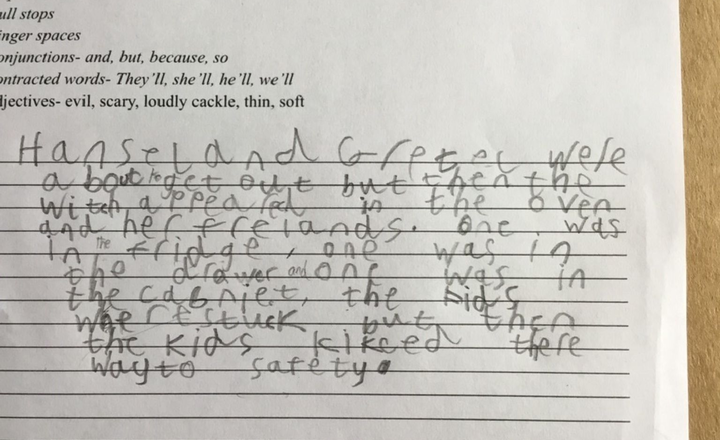 ull stops
nger spaces
onjunctions- and, but, because, so
ontracted words- They'll, she'll, he'll, we'll
djectives- evil, scary, loudly cackle, thin, soft
Hansel and Gretel were
about to get out but then the
witch appeared in the oven
and her frelands. One was
in the fridge, one was in
the drawer and one was in
the cabniet, the kids
were stuck but then
the kids kikced there
way to safety.